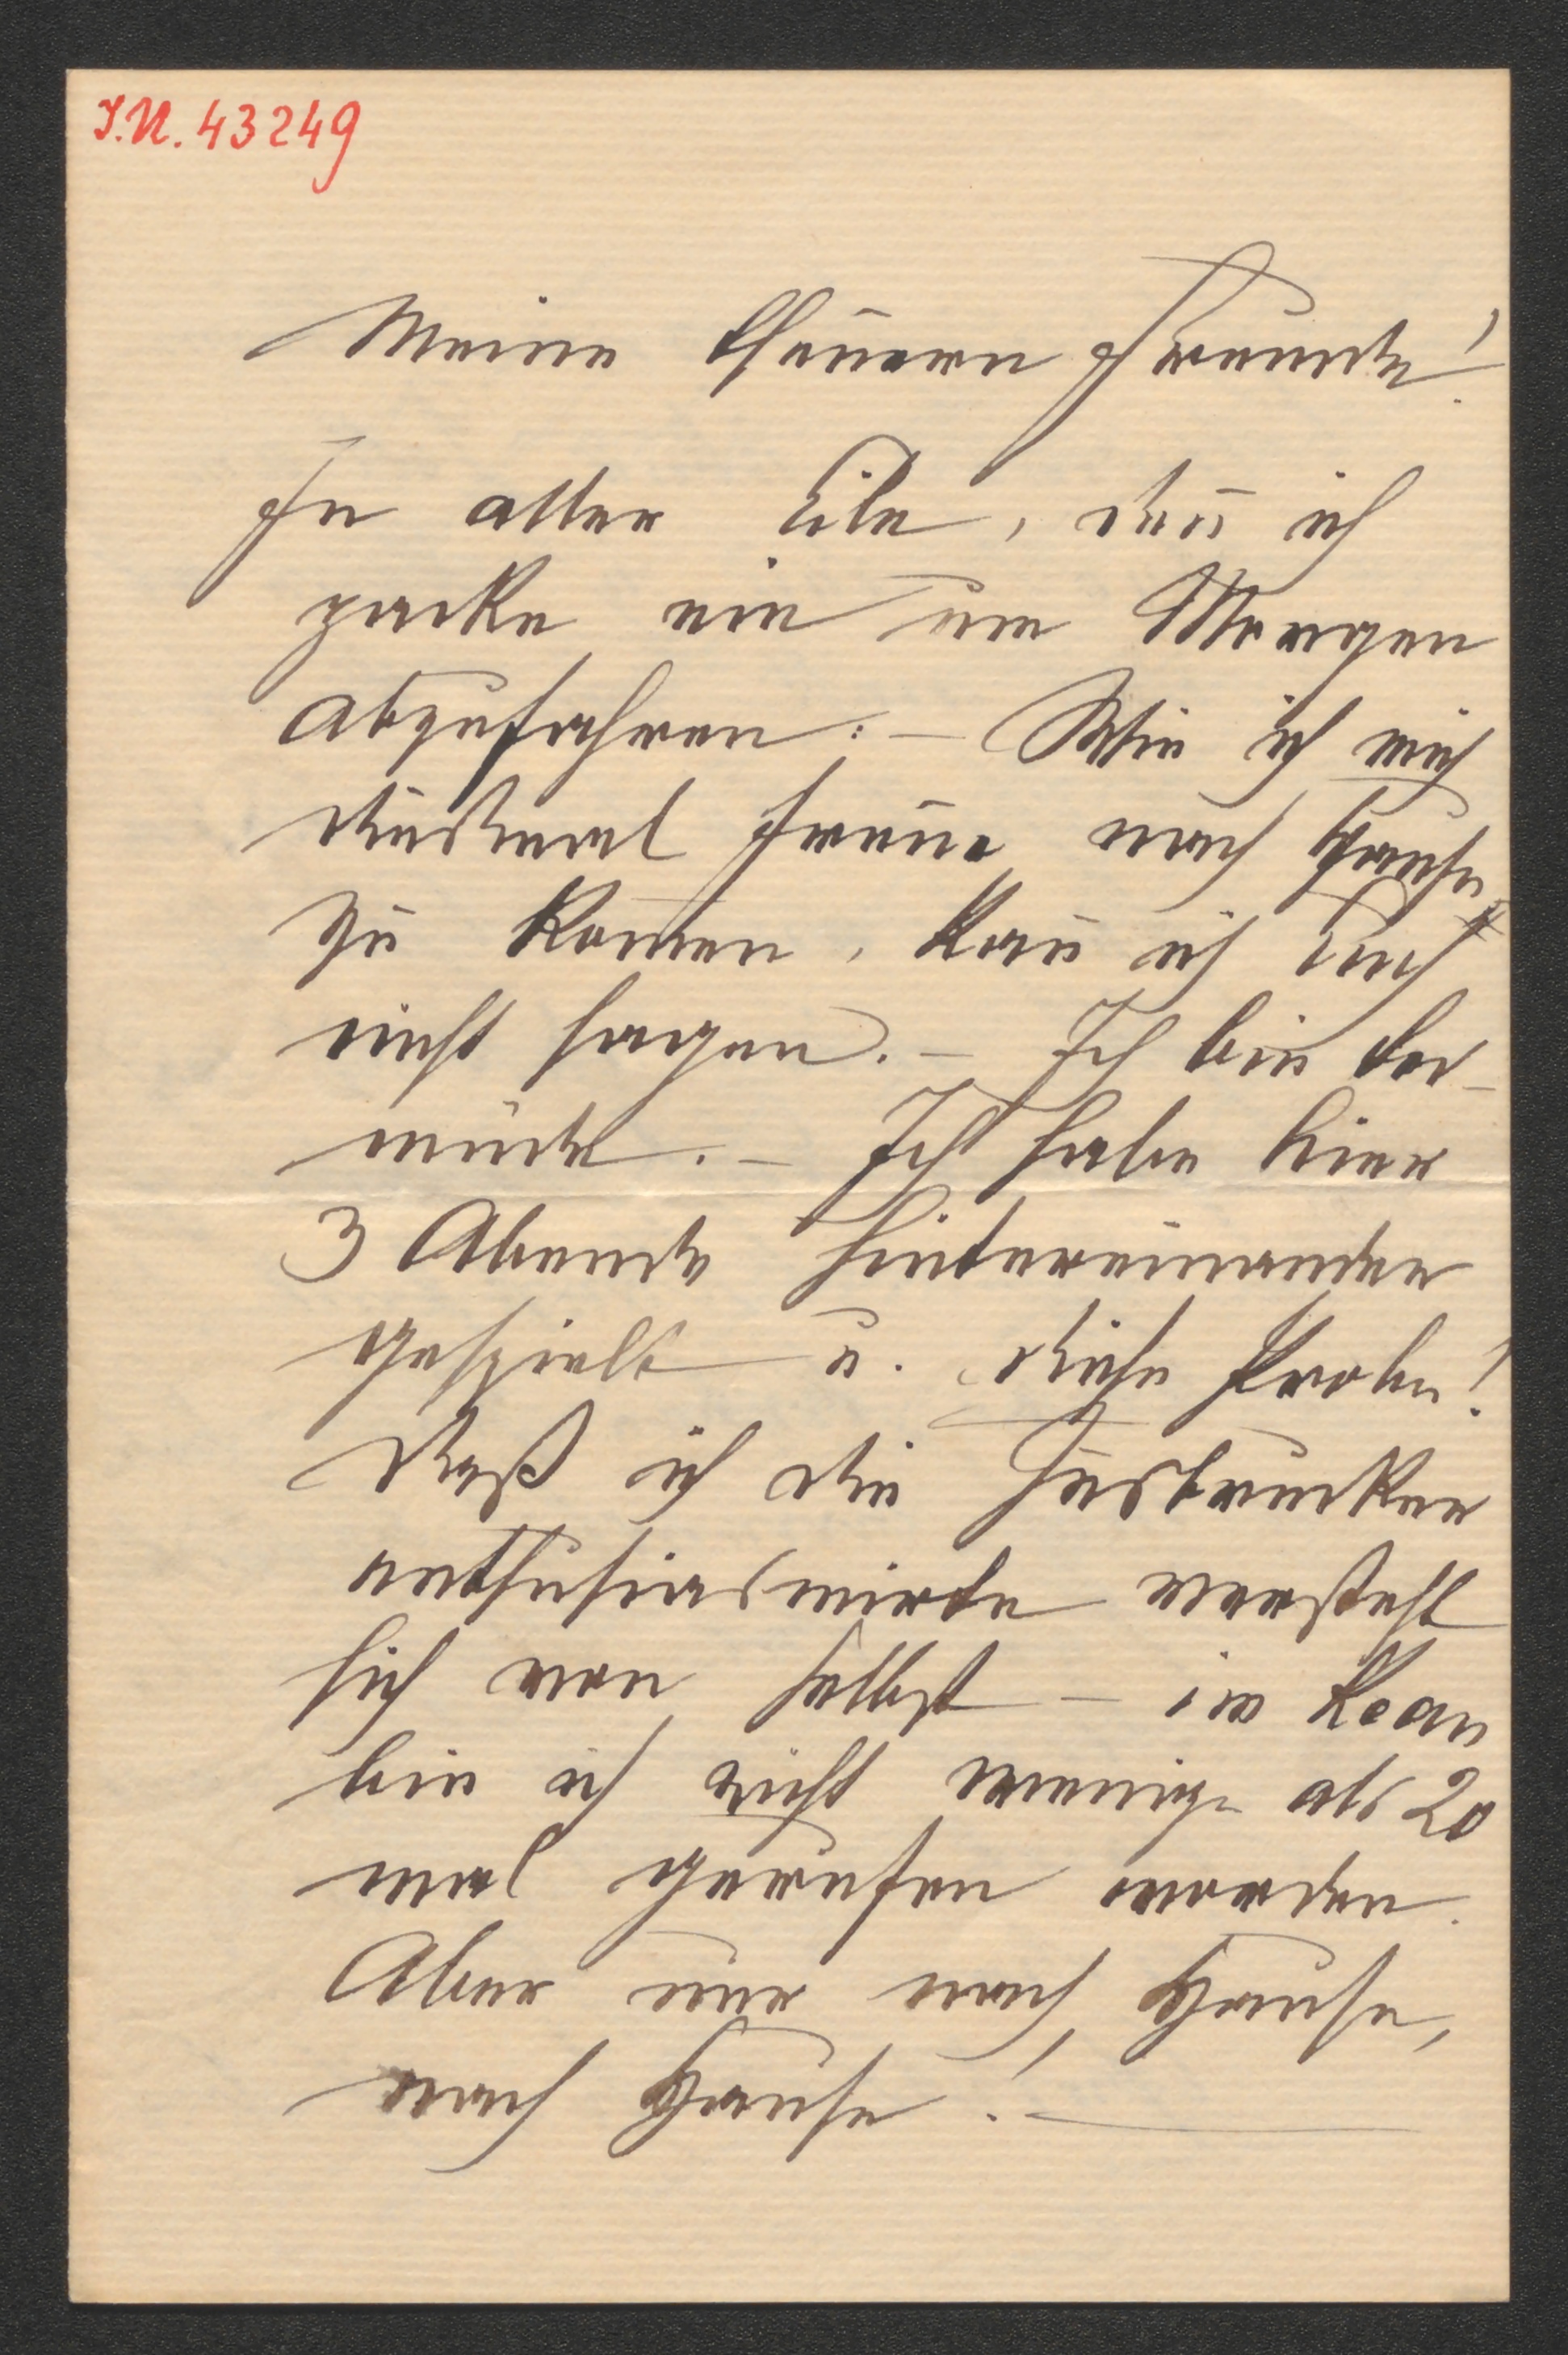 I.N. 43249
Meine theuern Freunde!
In aller Eile, den̄ ich
packe ein um Morgen
abzufahren. – Wie ich mich
diesmal freue nach Hause
zu kom̄en, kan̄ ich Euch
nicht sagen. – Ich bin tod–
müde. – Ich habe hier
3 Abende hintereinander
gespielt u. diese Proben!
Daß ich die Insbrucker
enthusiasmirte versteht
sich von selbst – im Kean
bin ich nicht weniger als 20
mal gerufen worden.
Aber nur nach Hause,
nach Hause! –